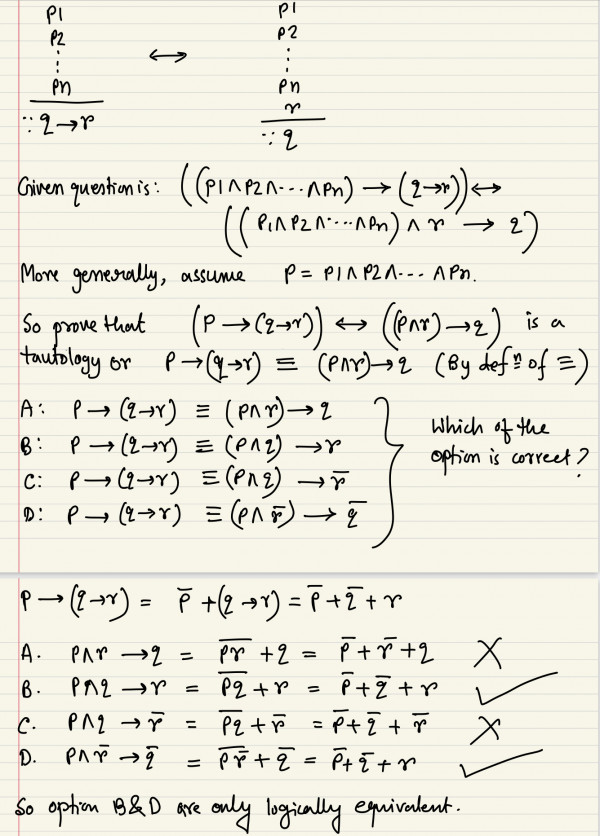 P1 P1
P2 P2
⋮ ↔ ⋮
Pn Pn
∵ q→r r
∵ q
Given question is: ((P1∧P2∧---∧Pn) → (q→r)) ↔
((P1∧P2∧---∧Pn) ∧ r → q)
More generally, assume P = P1∧P2∧--- ∧Pn.
So prove that (P → (q→r)) ↔ ((P∧r) → q) is a
tautology or P → (q→r) ≡ (P∧r)→ q (By defn of ≡)
A: P → (q→r) ≡ (P∧r) → q
B: P → (q→r) ≡ (P∧q) → r
Which of the
option is correct?
C: P → (q→r) ≡ (P∧q) → r̅
D: P → (q→r) ≡ (P∧r̅) → q̅
P → (q→r) = P̅ + (q→r) = P̅ + q̅ + r
A. P∧r → q = P̅r̅ + q = P̅ + r̅ + q ✗
B. P∧q → r = P̅q̅ + r = P̅ + q̅ + r ✓
C. P∧q → r̅ = P̅q̅ + r̅ = P̅ + q̅ + r̅ ✗
D. P∧r̅ → q̅ = \overline{Pr̅} + q̅ = P̅ + q̅ + r ✓
So option B & D are only logically equivalent.